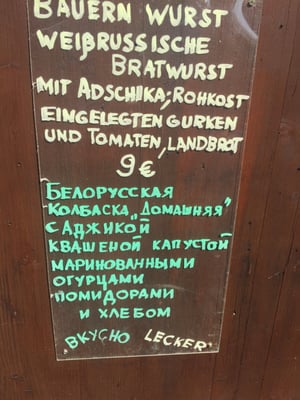 BAUERN WURST
WEIßRUSSISCHE
BRATWURST
MIT ADSCHIKA, ROHKOST
EINGELEGTEN GURKEN
UND TOMATEN, LANDBROT
9 €
БЕЛОРУССКАЯ
КОЛБАСКА „ДОМАШНЯЯ"
С АДЖИКОЙ
КВАШЕНОЙ КАПУСТОЙ
МАРИНОВАННЫМИ
ОГУРЦАМИ
ПОМИДОРАМИ
И ХЛЕБОМ
ВКУСНО LECKER